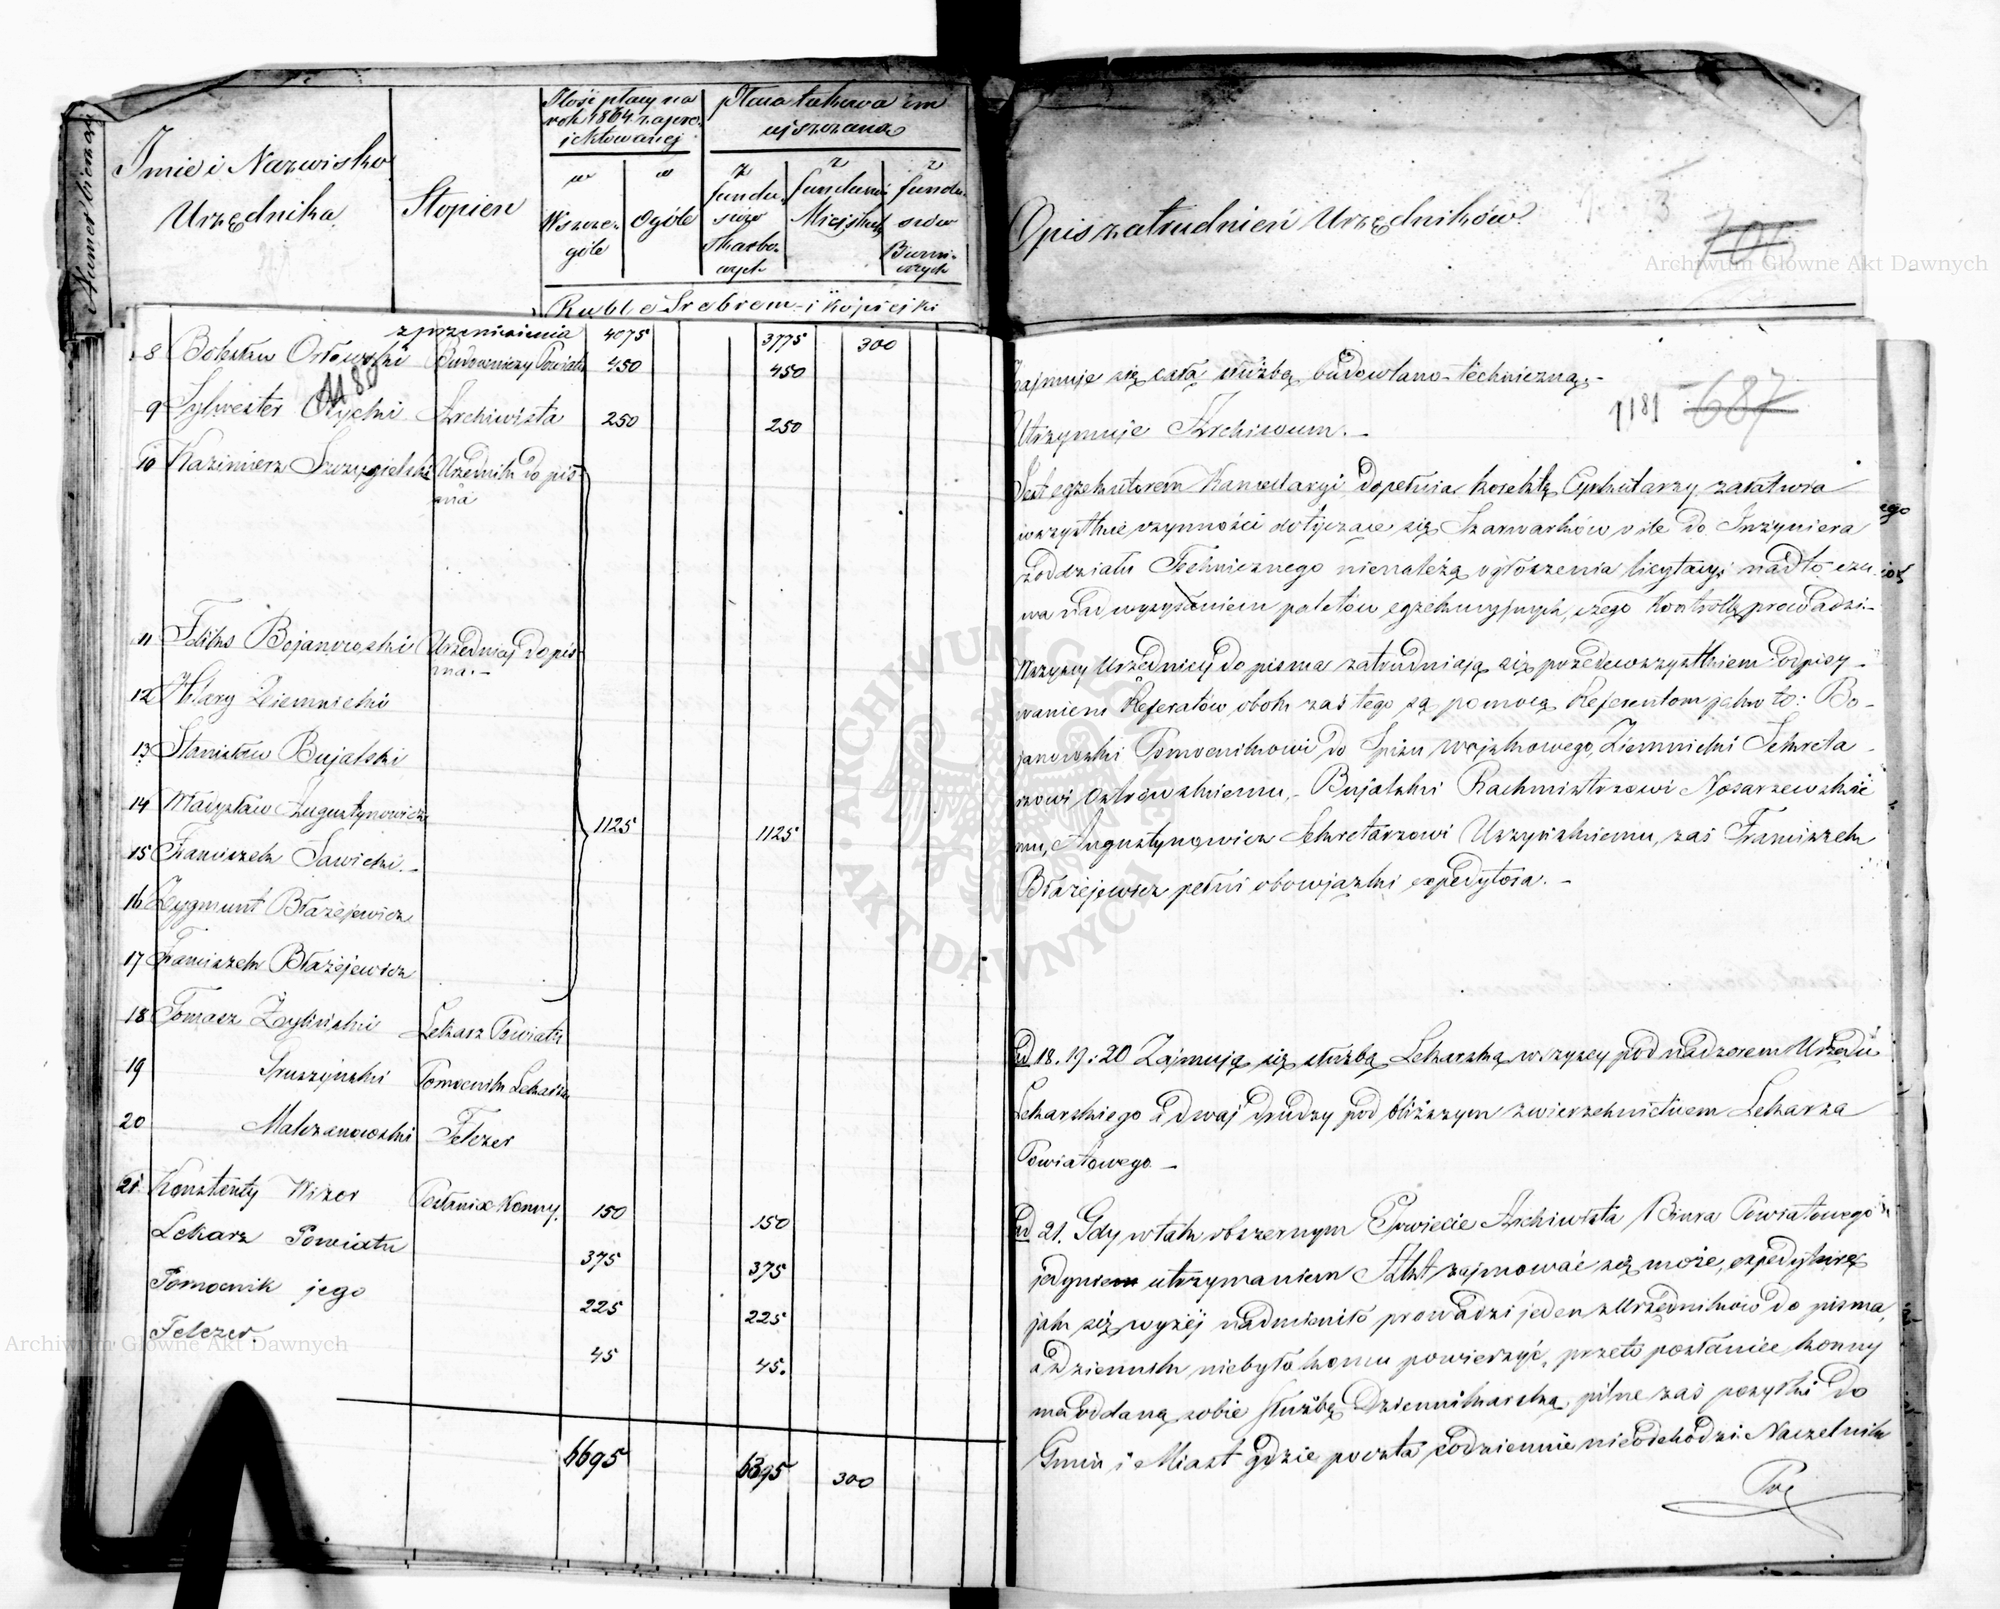 Numer bieżący
Imie i Nazwisko
Urzędnika
Stopien
Ilość płacy na
rok 1864 zapro-
iektowanej
płaca takowa im
uiszczana
w
Wszcze-
góle
w
Ogóle
z
fundu-
szów
Skarbo-
wych
z
funduszu
Miejskich
z
fundu-
szów
Ruble Srebrem i kopiejki
Opis zatrudnień Urzędników.
705
z przeniesienia 4075 3775 300
8 Bolesław Orłowski Budowniczy Powiatu 450 450
1180
9 Sylwester Archiwista 250 250
10 Kazimierz Szczygielski Urzednik do pis-
ma
11 Feliks Bojanowski Urzednicy do pis-
ma.-
12 Hilary Ziemnicki
13 Stanisław Bujalski
14 Władysław Augustynowicz 1125 1125
15 Franciszek Sawicki.-
16 Zygmunt Błażejewicz
17 Franciszek Błażejewicz
18 Tomasz Lekarz Powiatu
19 Pomocnik Lekarza
20 Malczanowski Felczer
21 Konstenty Wizor Posłaniec Konny. 150 150
Lekarz Powiatu 375 375
Pomocnik jego 225 225
Felczer. 45 45.
6695 6395 300
Zajmuje się całą służbą budowlano-techniczną.-
1181 687
Utrzymuje Archiwum.-
Jest egzekutorem Kancellaryi, dopełnia korektę Cyrkularzy załatwia
wszystkie czynności dotyczące się Szarwarków o ile do Inżyniera
Oddziału Technicznego nienależą ogłoszenia licytacyi nadto czu-
wa nad wysyłaniem paletów egzekucyjnych, czego Kontrollę prowadzi.-
Wszyscy Urzednicy do pisma zatrudniają się przedewszystkiem odpisy-
waniem Referatów, obok zaś tego są pomocą Referentom jako to: Bo-
janowski Pomocnikowi do Spisu wojskowego, Ziemnicki Sekreta-
rzowi Ostrowskiemu,- Bujalski Rachmistrzowi Nosarzewskie-
mu, Augustynowicz Sekretarzowi Urszyńskiemu, zaś Franciszek
Błażejewicz pełni obowjązki expedytora.-
Ad 18. 19. i 20 Zajmują się służbą Lekarską wszyscy pod nadzorem Urzedu
Lekarskiego a dwaj drudzy pod bliższym zwierzchnictwem Lekarza
Powiatowego.-
Ad 21. Gdy w tak obszernym Powiecie Archiwista Biura Powiatowego
jedynie utrzymaniem Akt zajmować się może, expedyturę
jak się wyżej nadmieniło prowadzi jeden z Urzędników do pisma,
a dziennik niebyło komu powierzyć, przeto posłaniec konny
ma oddaną sobie służbę Dziennikarską, pilne zaś posyłki do
Gmin i Miast gdzie poczta codziennie nieodchodzi. Naczelnik
Po
Archiwum Główne Akt Dawnych
Archiwum Główne Akt Dawnych
ARCHIWUM GŁÓWNE
AKT DAWNYCH